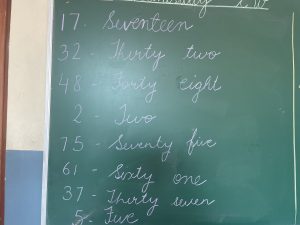 17. Seventeen
32 - Thirty two
48 - Forty eight
2 - Two
75 - Seventy five
61 - Sixty one
37 - Thirty seven
5 - Five